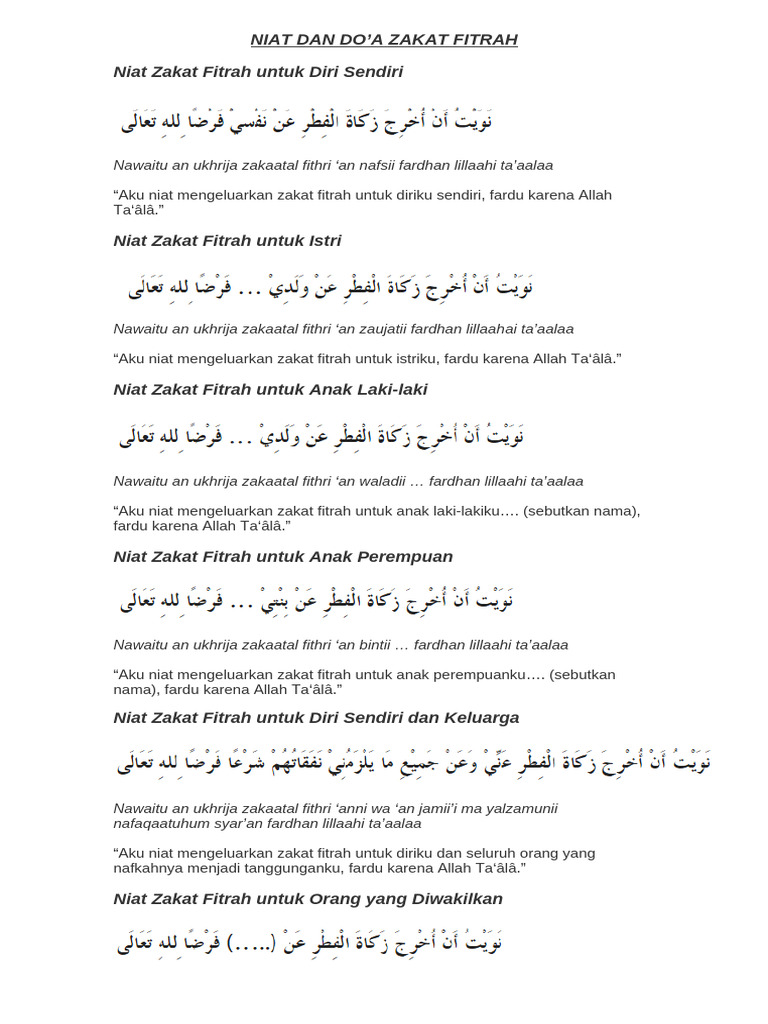 NIAT DAN DO’A ZAKAT FITRAH
Niat Zakat Fitrah untuk Diri Sendiri
نَوَيْتُ أَنْ أُخْرِجَ زَكَاةَ الْفِطْرِ عَنْ نَفْسيْ فَرْضًا ِللهِ تَعَالَى
Nawaitu an ukhrija zakaatal fithri ‘an nafsii fardhan lillaahi ta’aalaa
“Aku niat mengeluarkan zakat fitrah untuk diriku sendiri, fardu karena Allah
Ta‘âlâ.”
Niat Zakat Fitrah untuk Istri
نَوَيْتُ أَنْ أُخْرِجَ زَكَاةَ الْفِطْرِ عَنْ وَلَدِيْ ... فَرْضًا ِللهِ تَعَالَى
Nawaitu an ukhrija zakaatal fithri ‘an zaujatii fardhan lillaahai ta’aalaa
“Aku niat mengeluarkan zakat fitrah untuk istriku, fardu karena Allah Ta‘âlâ.”
Niat Zakat Fitrah untuk Anak Laki-laki
نَوَيْتُ أَنْ أُخْرِجَ زَكَاةَ الْفِطْرِ عَنْ وَلَدِيْ ... فَرْضًا ِللهِ تَعَالَى
Nawaitu an ukhrija zakaatal fithri ‘an waladii … fardhan lillaahi ta’aalaa
“Aku niat mengeluarkan zakat fitrah untuk anak laki-lakiku…. (sebutkan nama),
fardu karena Allah Ta‘âlâ.”
Niat Zakat Fitrah untuk Anak Perempuan
نَوَيْتُ أَنْ أُخْرِجَ زَكَاةَ الْفِطْرِ عَنْ بِنْتِيْ ... فَرْضًا ِللهِ تَعَالَى
Nawaitu an ukhrija zakaatal fithri ‘an bintii … fardhan lillaahi ta’aalaa
“Aku niat mengeluarkan zakat fitrah untuk anak perempuanku…. (sebutkan
nama), fardu karena Allah Ta‘âlâ.”
Niat Zakat Fitrah untuk Diri Sendiri dan Keluarga
نَوَيْتُ أَنْ أُخْرِجَ زَكَاةَ الْفِطْرِ عَنِّيْ وَعَنْ جَمِيْعِ مَا يَلْزَمُنِيْ نَفَقَاتُهُمْ شَرْعًا فَرْضًا ِللهِ تَعَالَى
Nawaitu an ukhrija zakaatal fithri ‘anni wa ‘an jamii’i ma yalzamunii
nafaqaatuhum syar’an fardhan lillaahi ta’aalaa
“Aku niat mengeluarkan zakat fitrah untuk diriku dan seluruh orang yang
nafkahnya menjadi tanggunganku, fardu karena Allah Ta‘âlâ.”
Niat Zakat Fitrah untuk Orang yang Diwakilkan
نَوَيْتُ أَنْ أُخْرِجَ زَكَاةَ الْفِطْرِ عَنْ (.....) فَرْضًا ِللهِ تَعَالَى